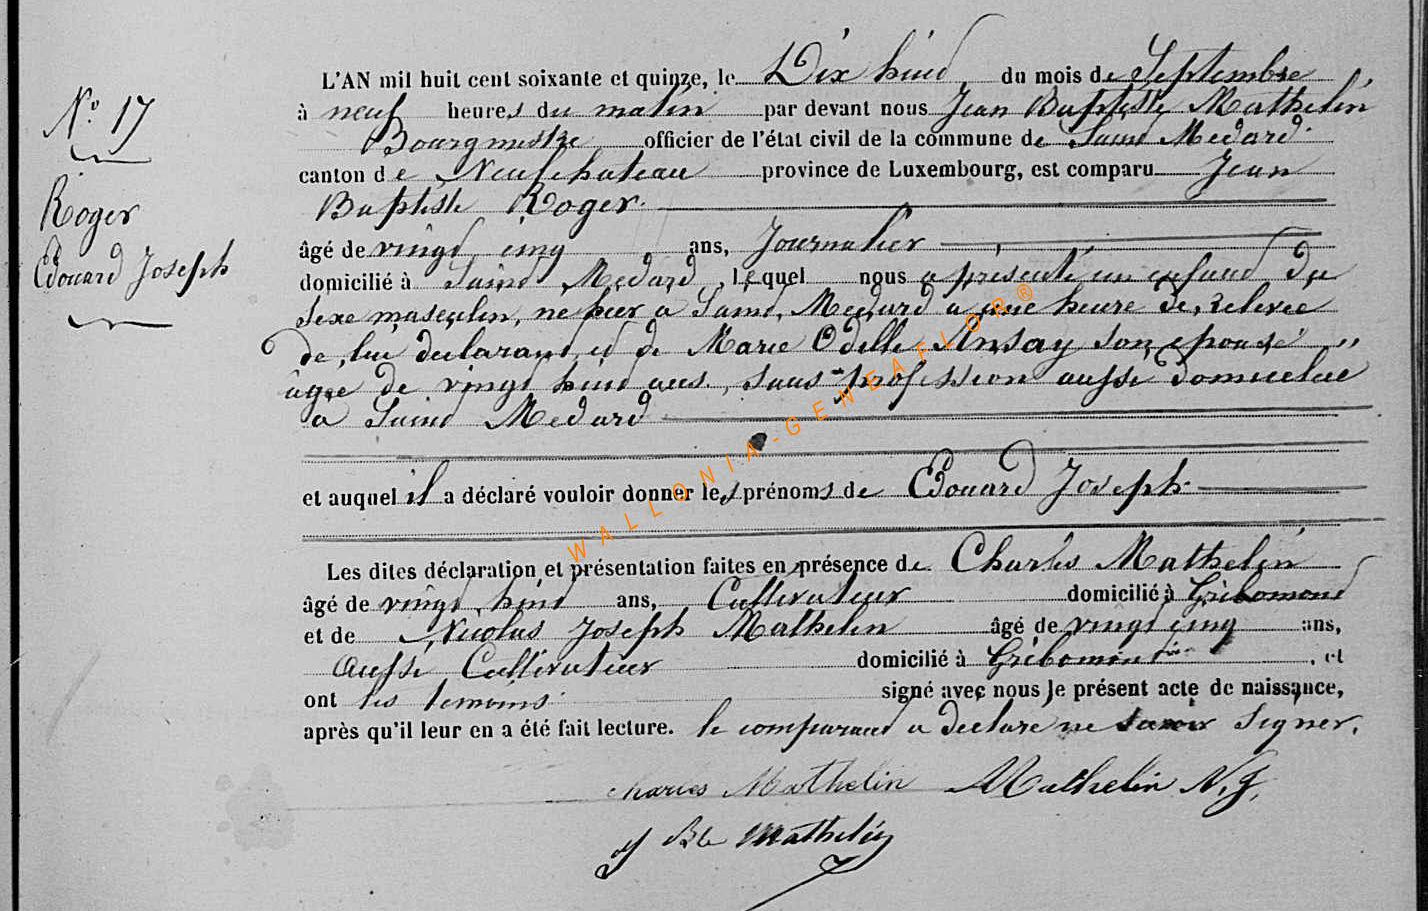 N.° 17
Roger
Edouard Joseph
L'AN mil huit cent soixante et quinze, le Dix huit du mois de Septembre
à neuf heures du matin par devant nous Jean Baptiste Mathelin
Bourgmestre officier de l'état civil de la commune de Saint Medard
canton de Neufchateau province de Luxembourg, est comparu Jean
Baptiste Roger.
âgé de vingt cinq ans, Journalier
domicilié à Saint Medard, lequel nous a presenté un enfant du
sexe masculin, né hier a Saint Medard a une heure de relevée
de lui declarant et de Marie Odille Ansay son epouse
âgée de vingt huit ans, sans profession aussi domiciliée
a Saint Medard
et auquel il a déclaré vouloir donner les prénoms de Edouard Joseph.
Les dites déclaration et présentation faites en présence de Charles Mathelin
âgé de vingt huit ans, Cultivateur domicilié à Gribomont
et de Nicolas Joseph Mathelin âgé de vingt cinq ans,
Aussi Cultivateur domicilié à Gribomont, et
ont les temoins signé avec nous le présent acte de naissance,
après qu'il leur en a été fait lecture. le comparant a declaré ne savoir signer.
Charles Mathelin Mathelin N. J.
J Bte Mathelin
WALLONIA-GENEAFLOR®